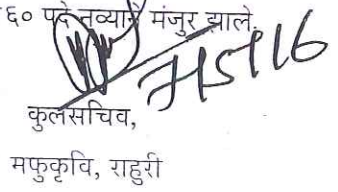 ६० पदे नव्याने मंजुर झाले.
कुलसचिव,
मफुकृवि, राहुरी